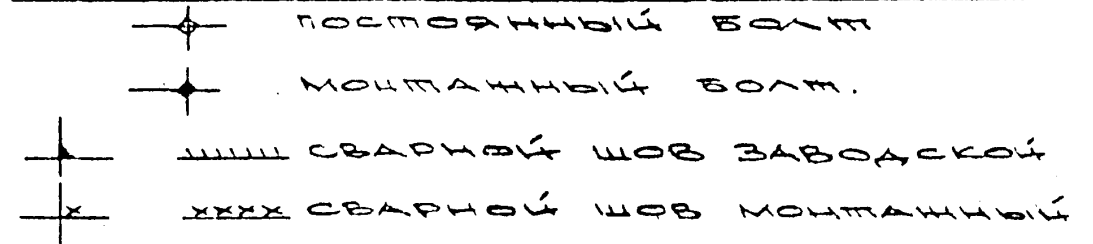 постоянный болт
монтажный болт.
сварной шов заводской
хххх сварной шов монтажный